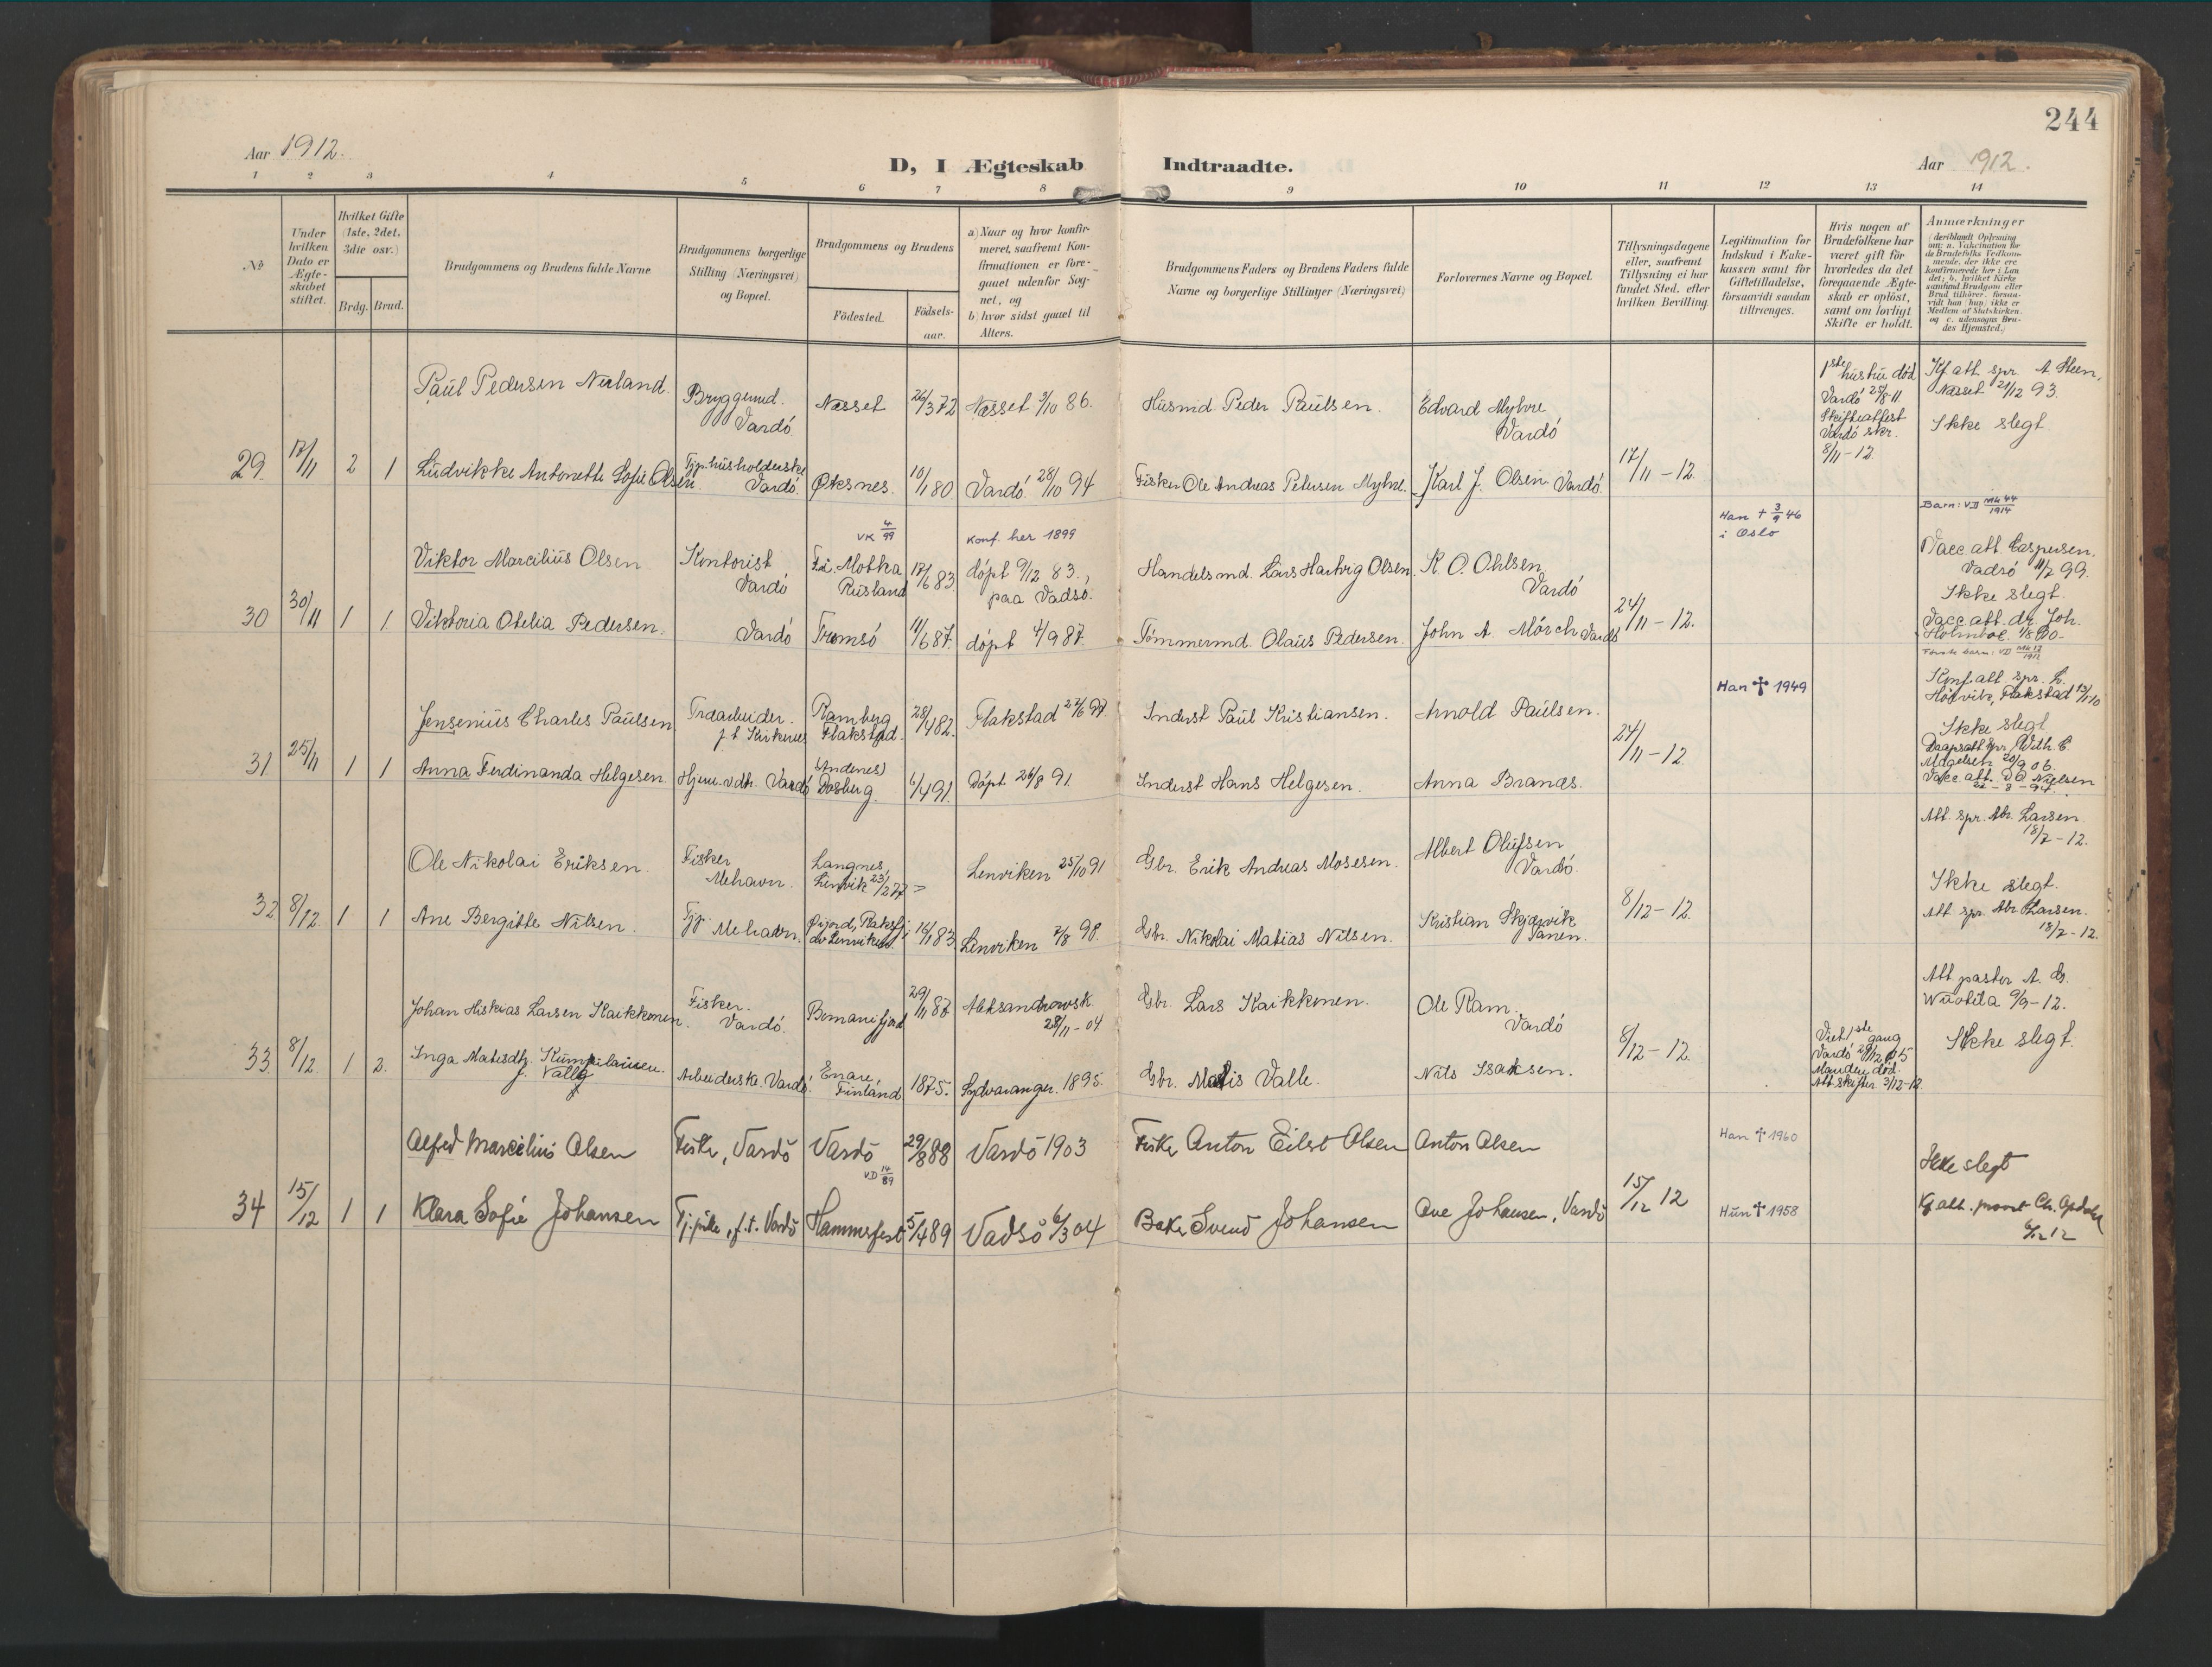 244
Aar 1912.
D, I Ægteskab Indtraadte.
Aar 1912.
1 2 3 4 5 6 7 8 9 10 11 12 13 14
No
Under hvilken Dato er Ægteskabet stiftet.
Hvilket Gifte (1ste, 2det, 3die osv.)
Brdg. Brud.
Brudgommens og Brudens fulde Navne
Brudgommens borgerlige Stilling (Næringsvei) og Bopæl.
Brudgommens og Brudens
Fødested. Fødselsaar.
a) Naar og hvor konfirmeret, saafremt Konfirmationen er foregaaet udenfor Sognet, og
b) hvor sidst gaaet til Alters.
Brudgommens Faders og Brudens Faders fulde Navne og borgerlige Stillinger (Næringsvei)
Forlovernes Navne og Bopæl.
Tillysningsdagene eller, saafremt Tillysning ei har fundet Sted, efter hvilken Bevilling
Legitimation for Indskud i Enkekassen samt for Giftetilladelse, forsaavidt saadan tiltrænges.
Hvis nogen af Brudefolkene har været gift før hvorledes da det foregaaende Ægteskab er opløst, samt om lovligt Skifte er holdt.
Anmærkninger
(deriblandt Oplysning om: a. Vakcination for de Brudefolks Vedkommende, der ikke ere konfirmerede her i Landet; b. hvilket Kirkesamfund Brudgom eller Brud tilhører, forsaavidt han (hun) ikke er Medlem af Statskirken, og c. udensogns Brudes Hjemsted.)
Paul Pedersen Nerland. Bryggemd. Vardö Nesset 26/3 72 Nesset 3/10 86. Husmd. Peder Paulsen. Edvard Myhre Vardö
1ste hustru död Vardö 25/8-11. Skifteattest Vardö skr. 8/11-12.
Kf. att. spr. A. Steen, Nesset 21/12 93.
Ikke slegt.
29. 17/11 2 1 Ludvikke Antonette Sofie Olsen. Tjp. husholderske Vardö. Øksnes. 10/1 80 Vardö 28/10 94 Fisker Ole Andreas Petersen Myhre. Karl J. Olsen Vardö. 17/11-12.
Barn: VD nr. 44/1914
VK 4/99 Konf. her 1899 Han + 3/9 46 i Oslo
Viktor Marcilius Olsen Kontorist Vardö Fil. Motka Rusland 17/6 83. döpt 9/12 83., paa Vadsö. Handelsmd. Lars Hartvig Olsen. K. O. Ohlsen Vardö
Vacc. att. Caspersen. Vadsö 11/7 99.
Ikke slegt.
30 30/11 1 1 Viktoria Otelia Pedersen. Vardö Tromsö 11/6 87. döpt 4/9 87. Tömmermd. Olaus Pedersen. John A. Mörch Vardö 24/11-12.
Vacc. att. dr. Joh. Holmboe. 1/8 90.
Første barn: VD nr. 17/1912
Han ✝ 1949
Jensenius Charles Paulsen. Træarbeider. f. t. Kirkenes Ramberg Flakstad. 28/4 82. Flakstad 27/6 97. Inderst Paul Kristiansen. Arnold Paulsen.
Konf. att. spr. L. Flakstad
Ikke slegt
31 25/11 1 1 Anna Ferdinanda Helgesen. Hjem.v. dtr. Vardö (Andenes) Dosberg. 6/4 91. Döpt 26/8 91. Inderst Hans Helgesen. Anna Brandes. 24/11-12.
Daapsatt. spr. Wilh. C. Magelsen 20/9 06.
Vacc. att. D. A. Nielsen
Att. spr. Abr. Larsen. 18/7-12.
Ole Nikolai Eriksen. Fisker Mehavn. Langnes, Lenvik 23/2 77 Lenviken 25/10 91 Gbr. Erik Andreas Mosesen. Albert Olufsen Vardö.
Ikke slegt.
32 8/12. 1 1 Ane Bergitte Nilsen. Tjp. Mehavn. Lenviken. 16/1 83 Lenviken 7/8 98. Gbr. Nikolai Matias Nilsen. Kristian Skjervik 8/12-12.
Att. spr. Abr. Larsen. 18/7-12.
Johan Hiskias Larsen Kaikkonen. Fisker. Vardö. Bomanifjord 29/11 87 Aleksandrowsk. 28/11-04 Gbr. Lars Kaikkonen. Ole Ram. Vardö
Att. pastor A. G. Wuotila 9/9-12.
33 8/12. 1 2. Inga Matisdtr. Kumpulainen. f. Valle Arbeiderske. Vardö. Enare, Finland 1875. Sydvaranger. 1895. Gbr. Matis Valle. Nils Isaksen. 8/12-12.
Viet 1ste gang Vardö 29/12 05 Manden död. Att. skifter. 3/12-12.
Ikke slegt.
Alfred Marcelius Olsen Fisker, Vardö Vardö 29/8 88 Vardö 1903 Fisker Anton Eilert Olsen Anton Olsen Han ✝ 1960
VD 14/89
Ikke slegt
34 15/12 1 1 Klara Sofie Johansen Tj.pike, f. t. Vardö Hammerfest 5/4 89 Vadsö 6/3 04 Baker Svend Johansen Ove Johansen, Vardö 15/12 12 Hun ✝ 1958
Kf. att. provst Ch. Opdahl 6/12 12